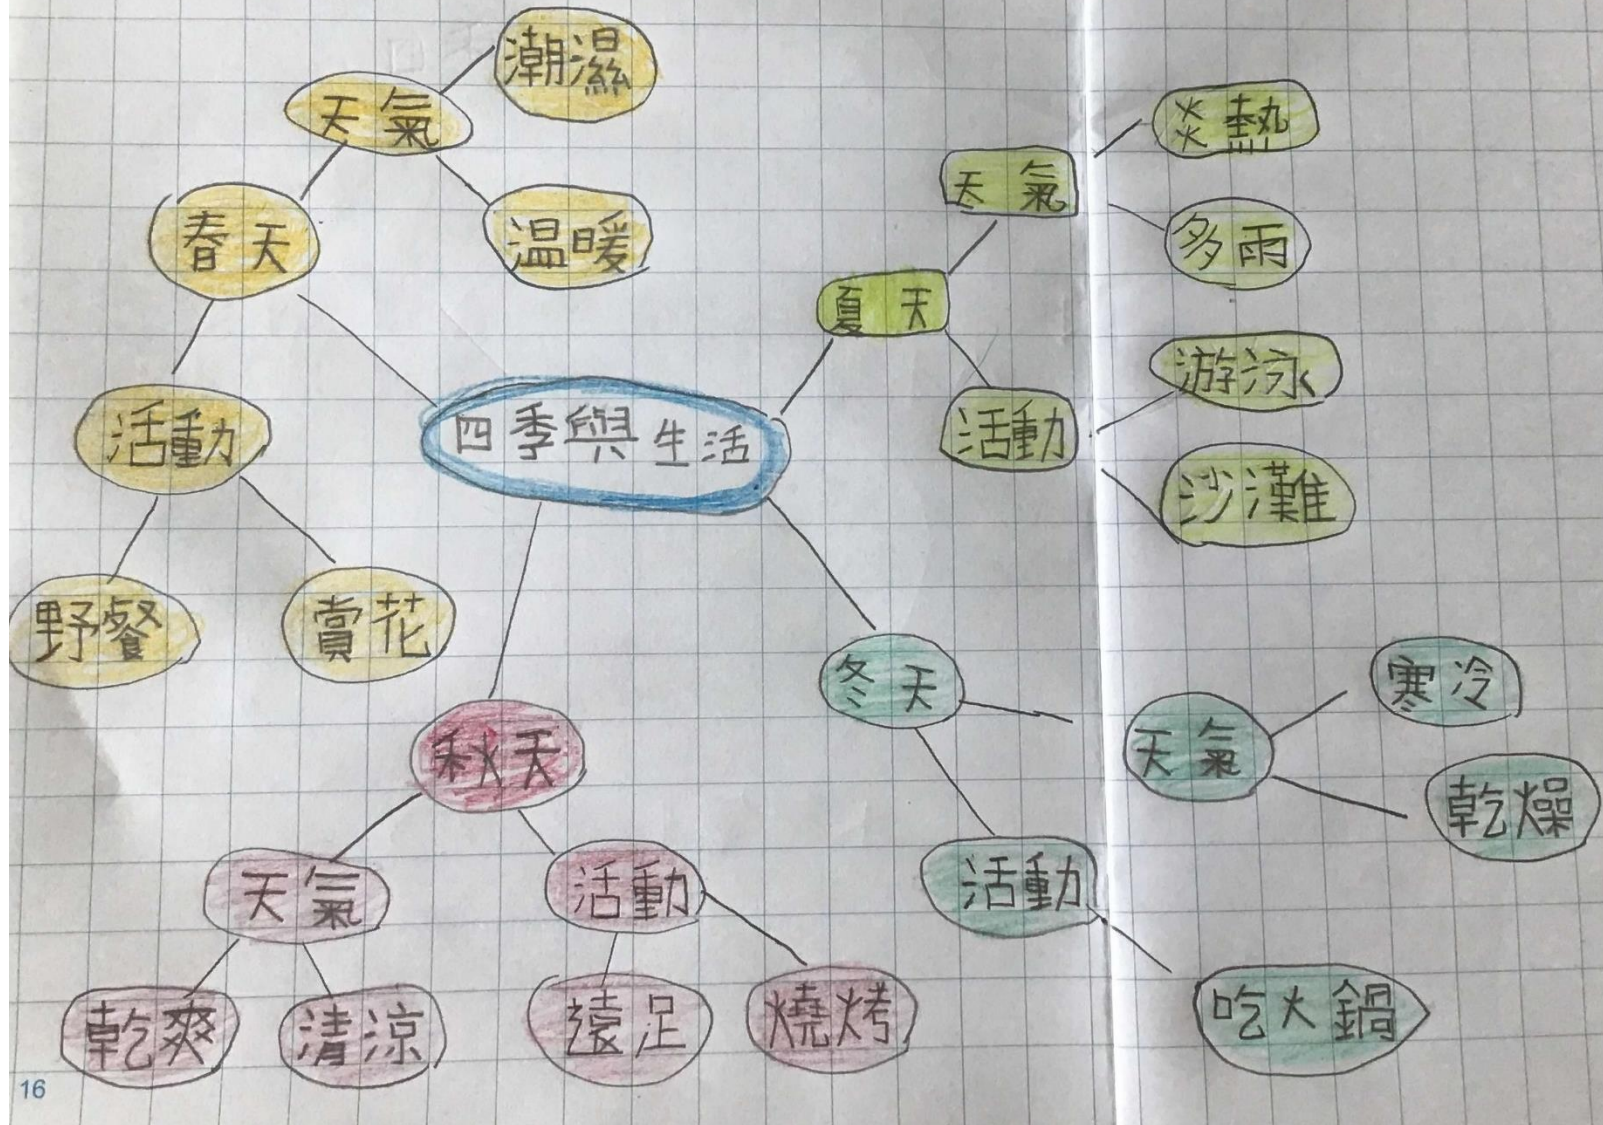 四季與生活
春天
天氣
潮濕
温暖
活動
野餐
賞花
夏天
天氣
炎熱
多雨
活動
游泳
沙灘
秋天
天氣
乾爽
清涼
活動
遠足
燒烤
冬天
天氣
寒冷
乾燥
活動
吃火鍋
16